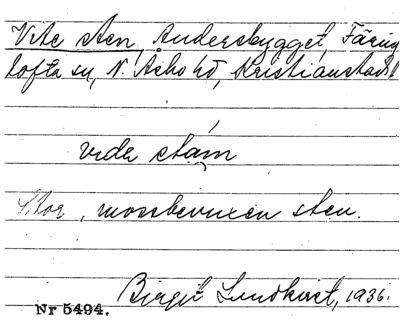 Vite sten, Andersbygget, Färing
lofta sn, N. Åsbo hd, Kristianstads l
vida stám
Stor, mossbevuxen sten.
Birgit Lundkvist, 1936.
Nr 5494.